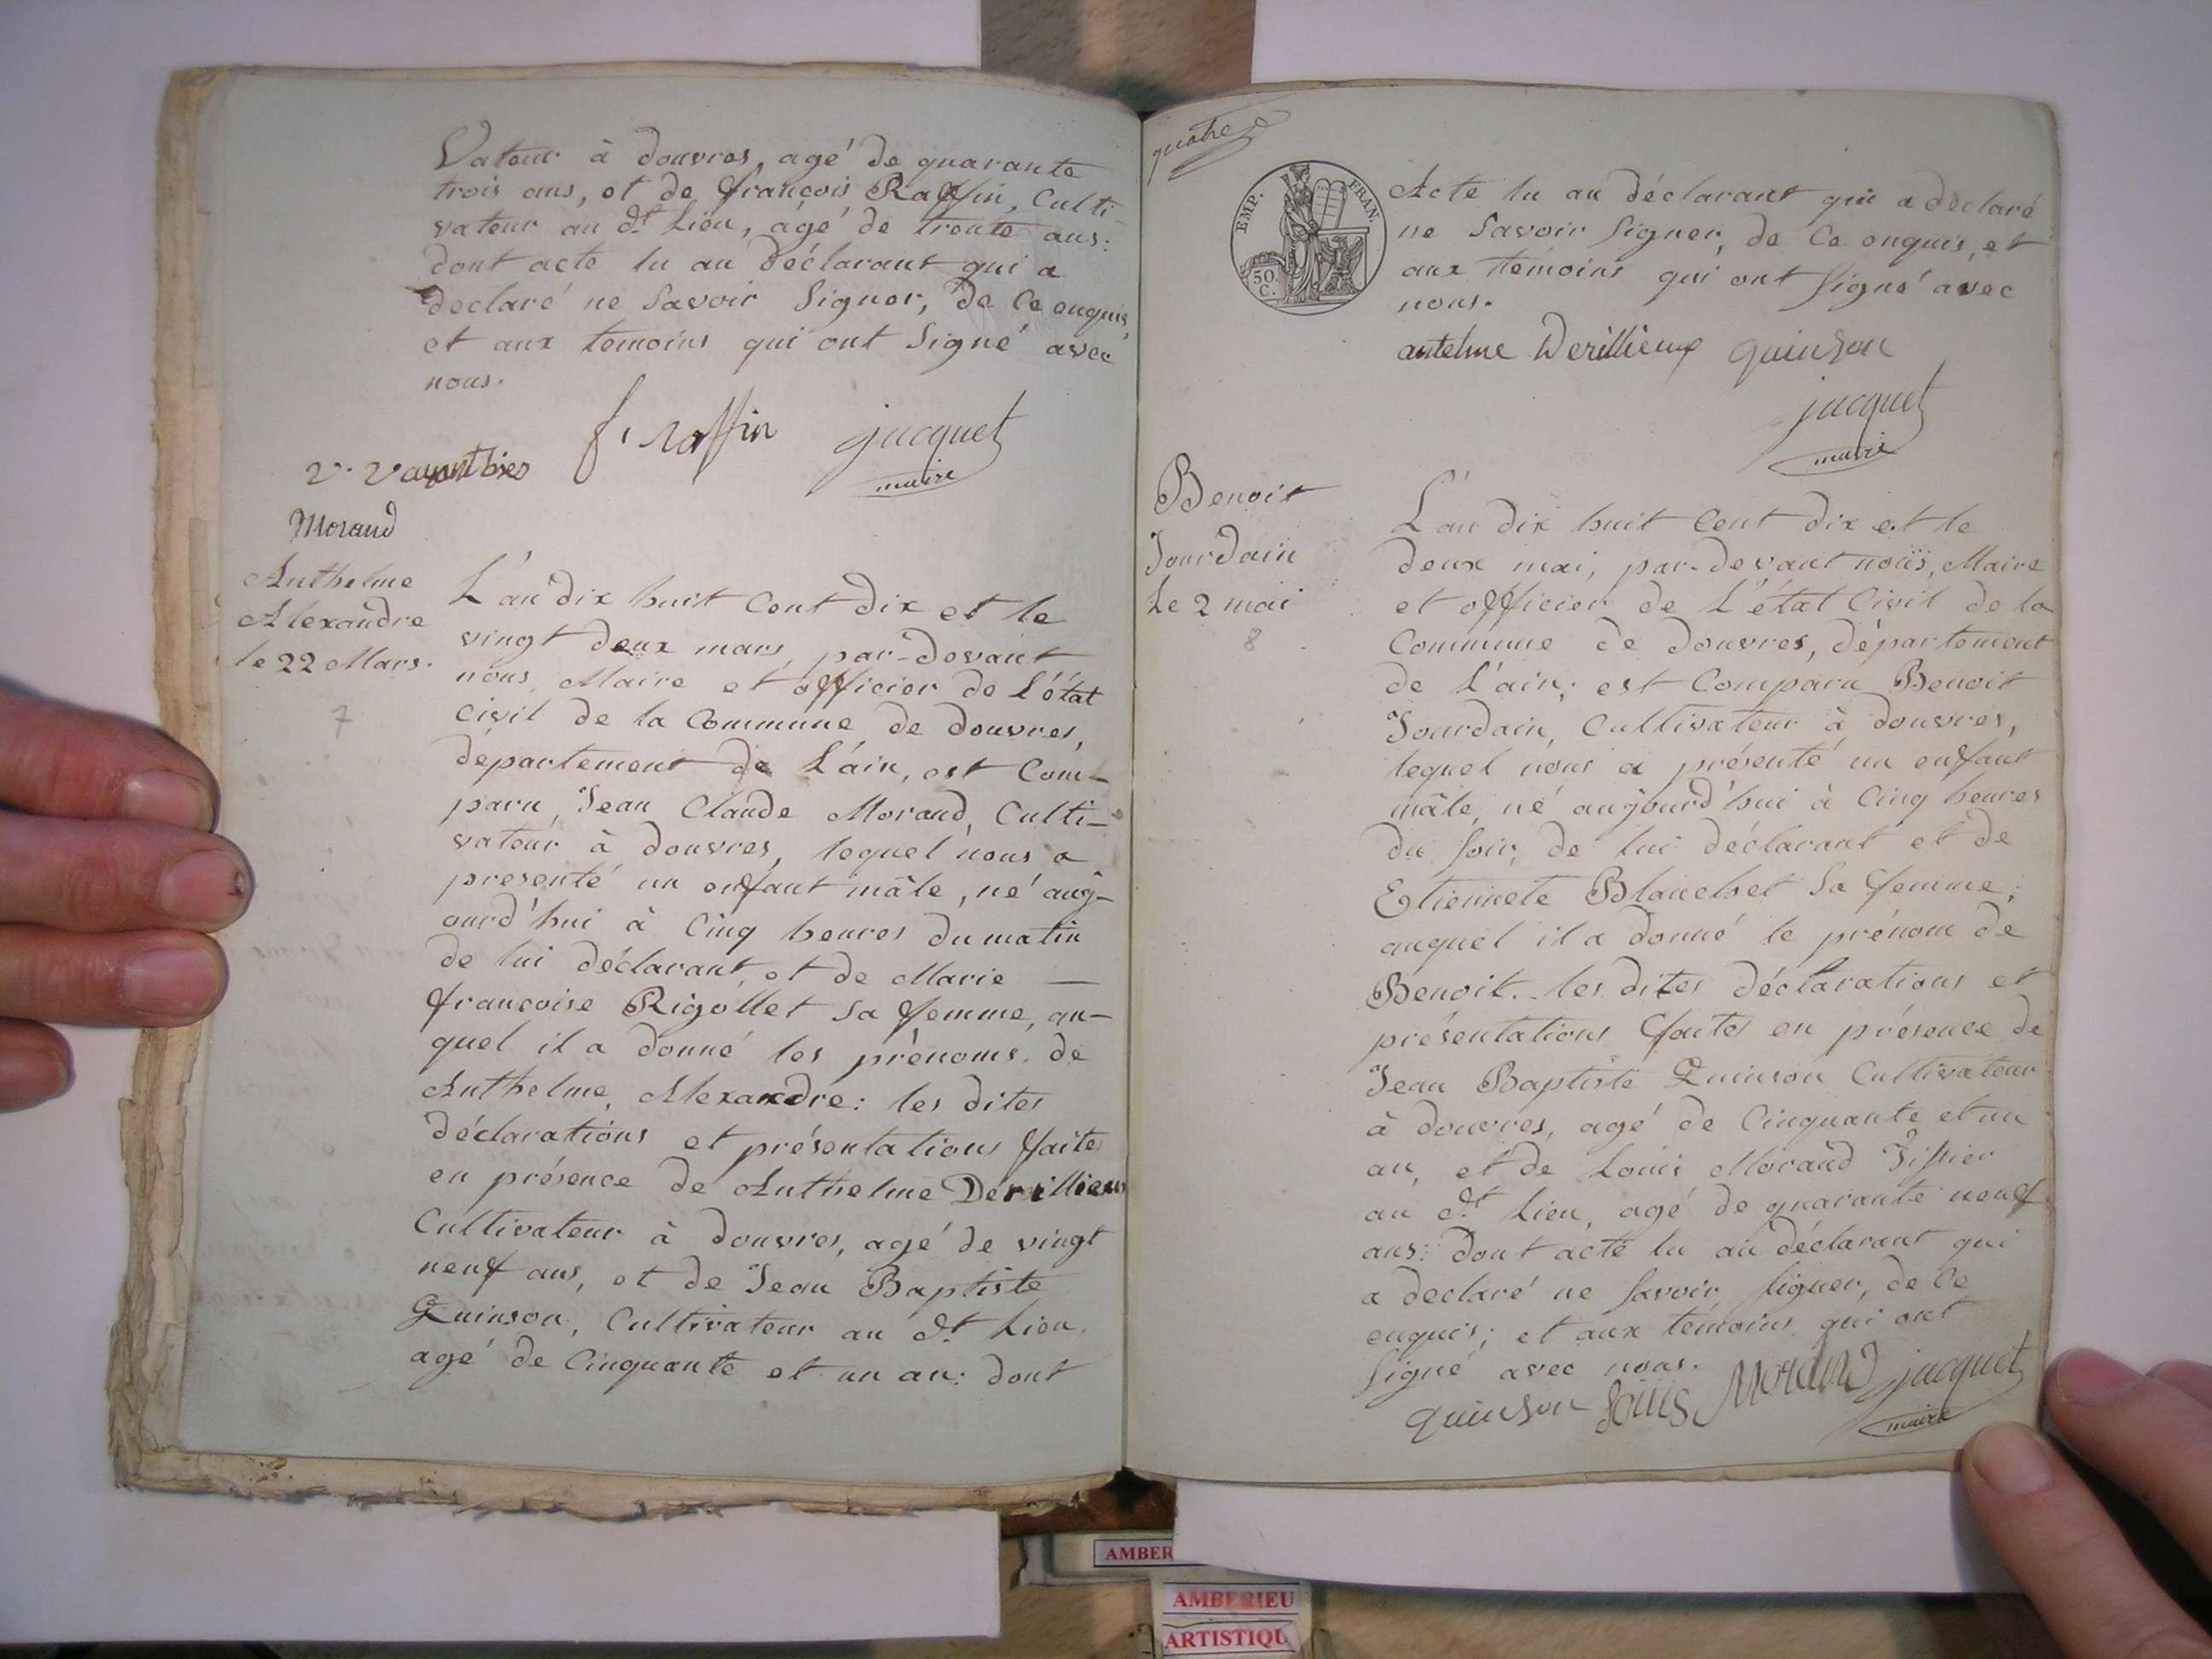 Vateur à douvres, agé de quarante
trois ans, et de françois Raffin, Culti-
vateur au dt. Lieu, agé de trente ans:
dont acte lu au déclarant qui a
declaré ne Savoir Signer, de Ce enquis,
et aux temoins qui ont Signé avec
nous.
f. raffin jacquet
maire
Morand
Anthelme
Alexandre
le 22 Mars.
7
L'an dix huit Cent dix et le
vingt deux mars, par-devant
nous, Maire et officier de L'état
Civil de la Commune de douvres,
département de L'ain, est Com-
paru, Jean Claude Morand, Culti-
vateur à douvres, lequel nous a
presenté un enfant mâle, né auj-
ourd'hui à Cinq heures du matin
de lui déclarant, et de Marie —
françoise Rigollet sa femme, au-
quel il a donné les prénoms de
Anthelme, Alexandre: les dites
déclarations et présentations faites
en présence de Anthelme Derillieux
Cultivateur à douvres, agé de vingt
neuf ans, et de Jean Baptiste
Quinson, Cultivateur au dt. Lieu,
agé de Cinquante et un an: dont
quatre
EMP. FRAN.
50
C.
Acte lu au déclarant qui a déclaré
ne Savoir Signer, de Ce enquis, et
aux témoins qui ont Signé avec
nous.
antelme Derillieux quinson
jacquet
maire
Benoit
Jourdain
Le 2 mai
8
L'an dix huit Cent dix et le
deux mai, par-devant nous, Maire
et officier de L'état Civil de la
Commune de douvres, département
de L'ain; est Comparu Benoit
Jourdain, Cultivateur à douvres,
lequel nous a présenté un enfant
mâle, né aujourd'hui à Cinq heures
du Soir, de lui déclarant et de
Etiennete Blanchet Sa femme;
auquel il a donné le prénom de
Benoit. les dites déclarations et
présentations faites en présence de
Jean Baptiste Quinson Cultivateur
à douvres, agé de Cinquante et un
an, et de Louis Morand Tissier
au dt. Lieu, agé de quarante neuf
ans: dont acte lu au déclarant qui
a declaré ne Savoir Signer, de Ce
enquis; et aux témoins qui ont
Signé avec nous.
quinson Loüis Morand jacquet
maire
AMBER
AMBERIEU
ARTISTIQU